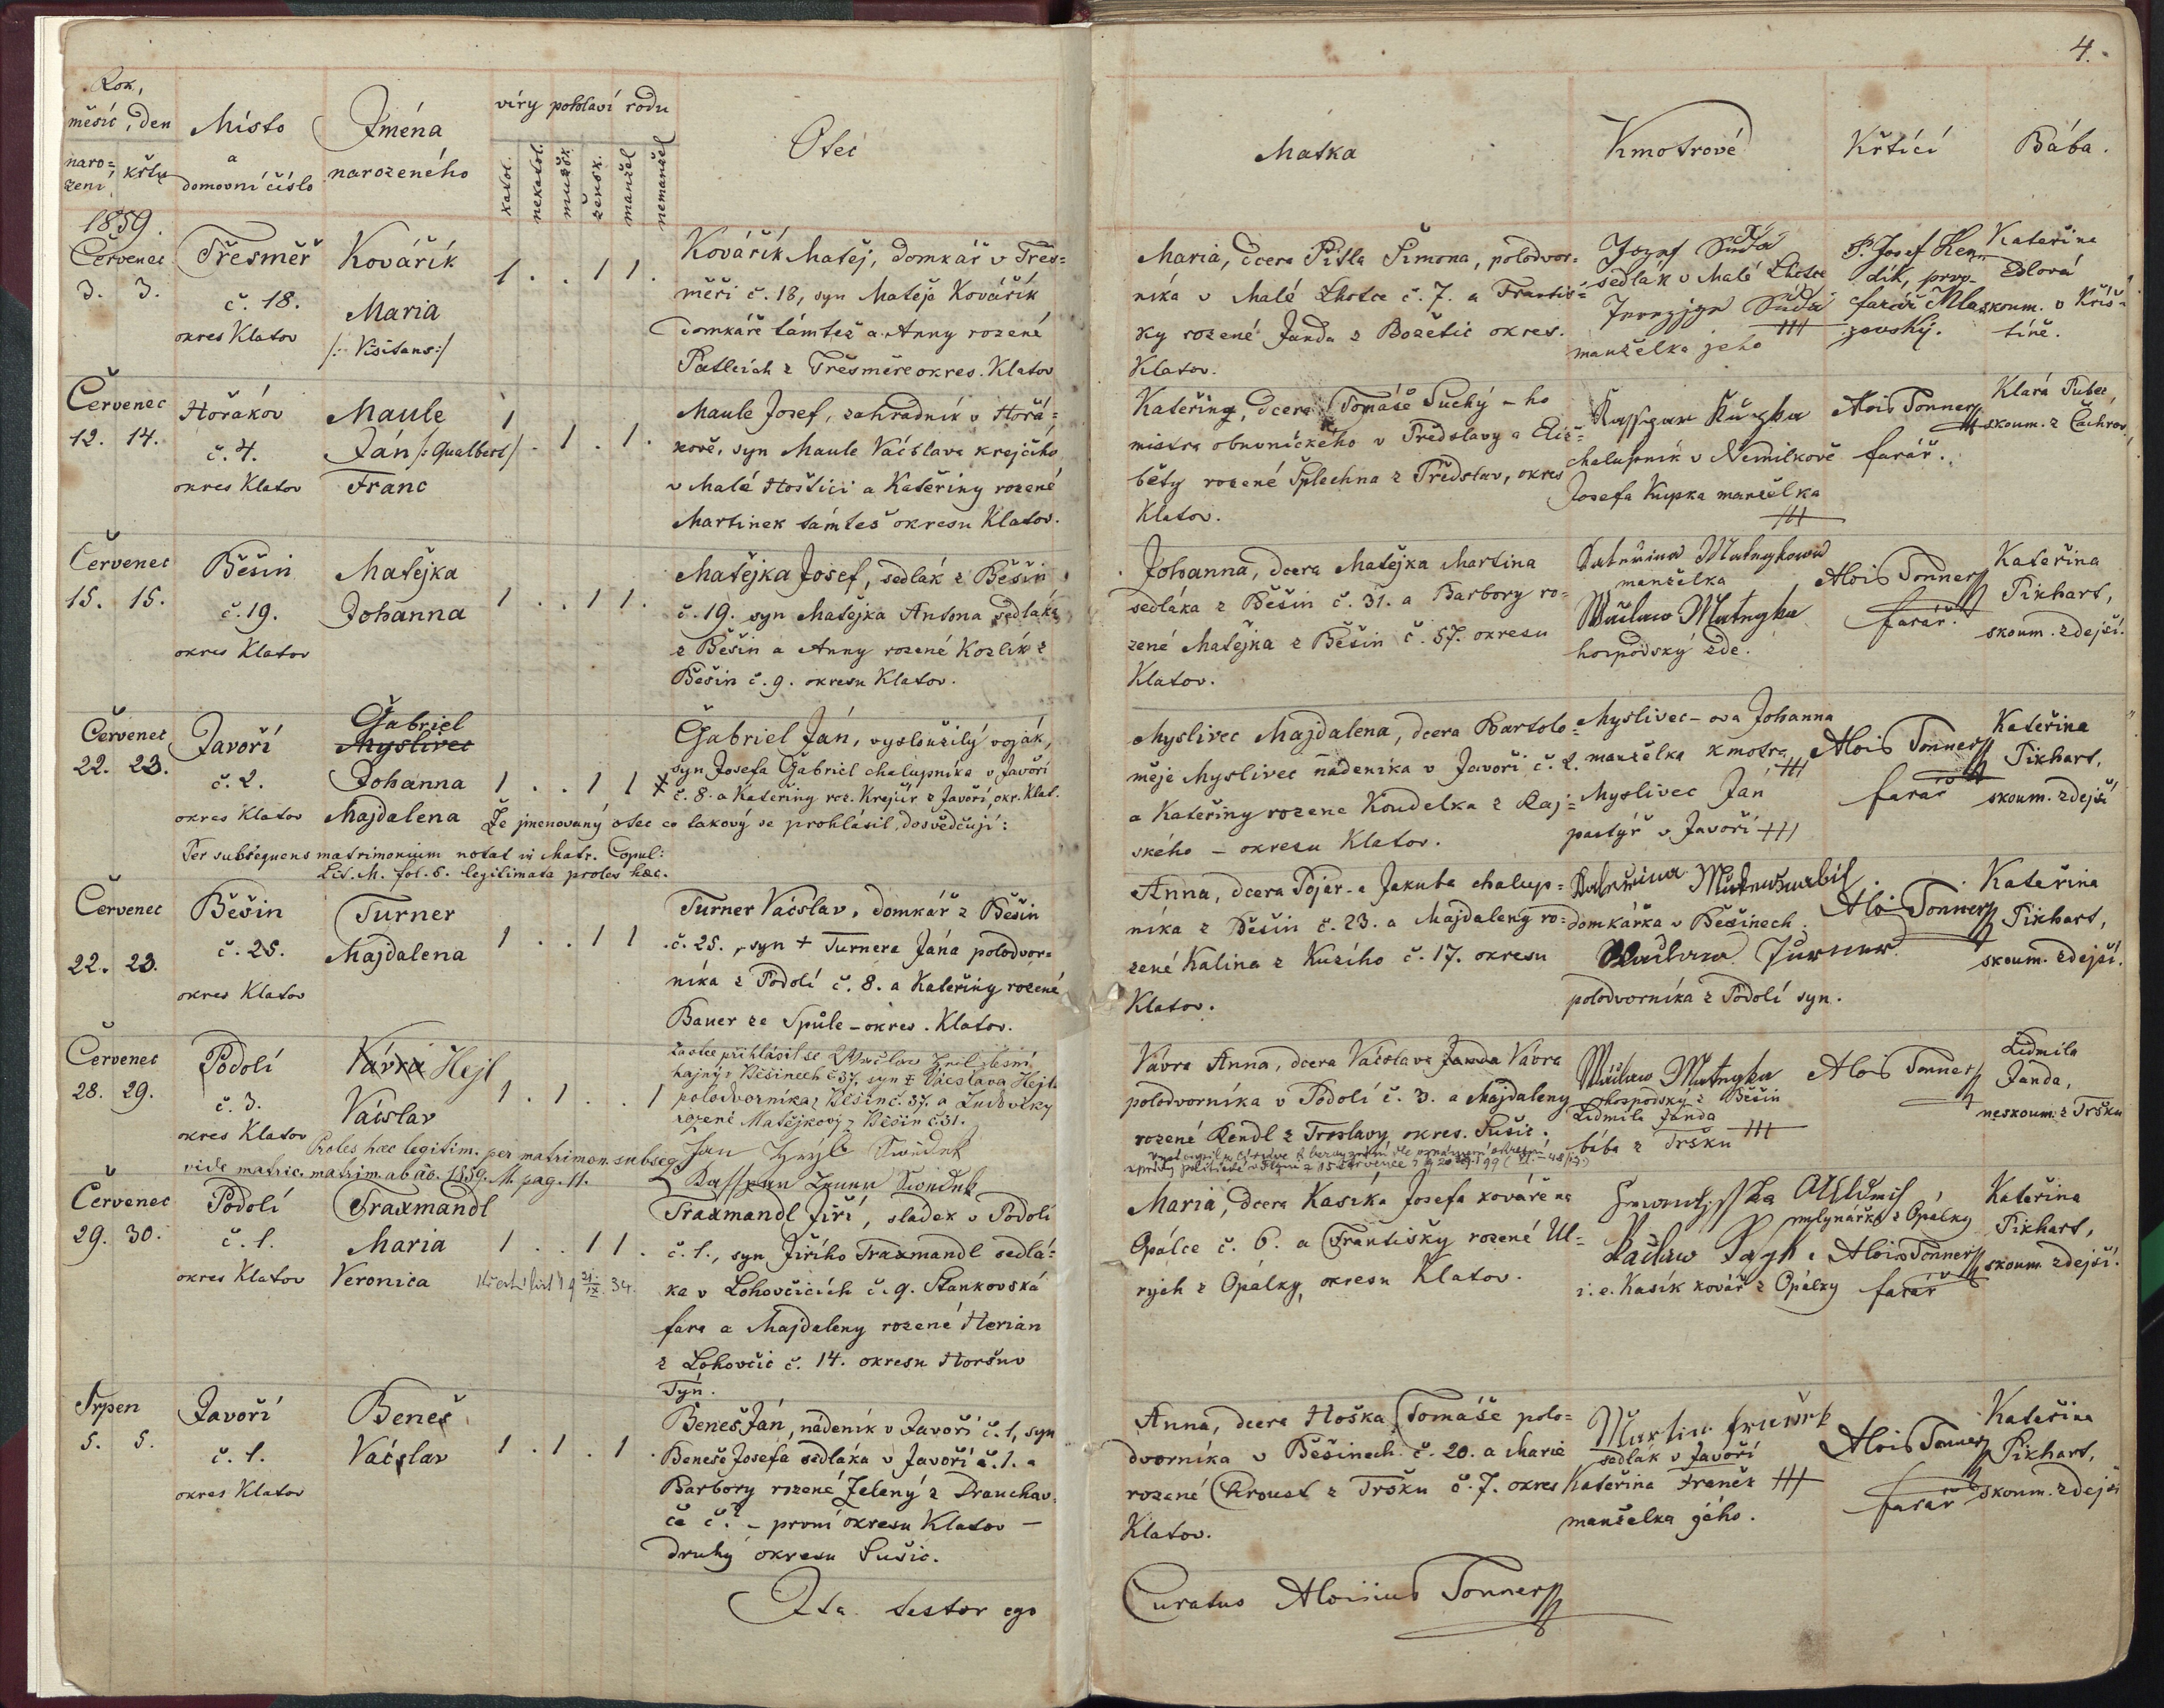 4.
Rok,
měsíc, den
naro=
zení
křtu
Místo
a
domovní číslo
Jména
narozeného
víry pohlaví rodu
katol.
nekatol.
mužsk.
žensk.
manžel
nemanžel
Otec
Matka
Kmotrové
Křtící
Bába.
1859.
Červenec
3. 3.
Třesměř
č. 18.
okres Klatov
Kovářík
Maria
/: Visitans :/
1 . . 1 1 .
Kovářík Matěj, domkář v Třes=
měři č. 18, syn Matěje Kovářík
domkáře támtež a Anny rozené
z Třesměře okres. Klatov
Maria, dcera Pitla Šimona, polodvor=
níka v Malé Lhotce č. 7. a Františ=
ky rozené Janda z Božetic okres.
Klatov.
Jozef
sedlák v Malé Lhotce
manželka jeho
P. Josef
farář
Kateřina
Edlová
skoum. v Kriš=
tíně.
Červenec
12. 14.
Hořákov
č. 4.
okres Klatov
Maule
Ján /: Gualbert /
Franc
1 . 1 . 1 .
Maule Josef, zahradník v Horá=
kově, syn Maule Václava krejčího
v Malé Hoštici a Kateřiny rozené
Martinek támtež okresu Klatov.
Kateřina, dcera Tomáše Suchý - ho
mistra obuvnického v Předslavy a Eliž=
běty rozené Šplechna z Předslav, okres
Klatov.
chalupník v Nemilkově
Josefa Kupka manželka
+++
Alois Tonner
farář.
Klará Tubec,
skoum. z Čachrov
Červenec
15. 15.
Běšin
č. 19.
okres Klatov
Matějka
Johanna
1 . . 1 1 .
Matějka Josef, sedlák z Běšin
č. 19. syn Matějka Antona sedláka
z Běšin a Anny rozené Kozlík z
Běšin č. 9. okresu Klatov.
Johanna, dcera Matějka Martina
sedláka z Běšin č. 31. a Barbory ro=
zené Matějka z Běšin č. 57. okresu
Klatov.
manželka
hospodský zde.
Alois Tonner
farář.
Kateřina
Pikhart,
skoum. zdejší.
Červenec
22. 23.
Javoří
č. 2.
okres Klatov
Gabriel
Myslivec
Johanna
Majdalena
1 . . 1 1
Gabriel Ján, vysloužilý voják,
syn Josefa Gabriel chalupníka v Javoří
č. 8. a Kateřiny roz. Krejčir z Javoří, okr. Klat.
Že jmenovaný otec co takový se prohlásil, dosvědčují:
Per subsequens matrimonium notat in Matr. Copul:
Lit. M. fol. 5. legitimata proles haec.
Myslivec Majdalena, dcera Bartolo=
měje Myslivec nádeníka v Javoři č. 2.
a Kateřiny rozene Koudelka z Raj=
ského - okresu Klatov.
Myslivec - ova Johanna
manželka kmotra +++
Myslivec Ján
pastýř v Javoři +++
Alois Tonner
farář
Kateřina
Pikhart,
skoum. zdejší
Červenec
22. 23.
Běšin
č. 25.
okres Klatov
Turner
Majdalena
1 . . 1 1 .
Turner Václav, domkář z Běšin
č. 25., syn + Turnera Jána polodvor=
níka z Podolí č. 8. a Kateřiny rozené
Bauer ze Spůle - okres. Klatov.
Anna, dcera Pojar - a Jakuba chalup=
níka z Běšin č. 23. a Majdaleny ro=
zené Kalina z Kuzího č. 17. okresu
Klatov.
domkářka v Běšinech.
Turner
polodvorníka z Podolí syn.
Tonner
Kateřina
Pikhart,
skoum. zdejší.
Červenec
28. 29.
Podolí
č. 3.
okres Klatov
Vávra Hejl
Václav
1 . 1 . . 1
Za otce přihlásil se Václav Hejl lesní
hajný z Běšinech č 37, syn + Vácslava Hejl
polodvorníka z Běšin č. 37. a Ludovíky
rozené Matějkový z Běšin č. 31.
Jan Svědek
Svědek
Proles haec legitim. per matrimon. subseq.
vide matric. matrim. ab ao. 1859. M. pag. 11.
Vávra Anna, dcera Václava Janda Vávra
polodvorníka v Podolí č. 3. a Majdaleny
rozené Rendl z Troslavy okres. Sušic.
hospodský z Běšin
Lidmila Janda
bába z Tršku +++
Alois Tonner
Lidmila
Janda,
neskoum. z Tršku
Červenec
29. 30.
Podolí
č. 1.
okres Klatov
Traxmandl
Maria
Veronica
1 . . 1 1 .
Traxmandl Jiří, sladek v Podolí
č. 1., syn Jiřího Traxmandl sedlá=
ka v Lohovčicích č. 9. Stankovská
fara a Majdaleny rozené Herian
z Lohovčic č. 14. okresu Horšuv
Týn.
Maria, dcera Kasíka Josefa kováře na
Opálce č. 6. a Františky rozené Ul=
rych z Opálky, okresu Klatov.
mlynářka z Opálky
i. e. Kasík kovář z Opálky
Alois Tonner
farář
Kateřina
Pikhart,
skoum. zdejší.
Srpen
5. 5.
Javoří
č. 1.
okres Klatov
Beneš
Václav
1 . 1 . 1 .
Beneš Ján, nádeník v Javoří č. 1, syn
Beneše Josefa sedláka v Javoří č. 1. a
Barbory rozené Zelený z
- první okresu Klatov -
druhý okresu Sušic.
Anna, dcera Hoška Tomáše polo=
dvorníka v Běšinech č. 20. a Marie
rozené Chroust z Tršku č. 7. okres
Klatov.
Martin
sedlák v Javoří
Kateřina Freněk +++
manželka jého.
Alois Tonner
farář
Kateřina
Pikhart,
skoum. zdejší
Ita testor ego
Curatus Aloisius Tonner